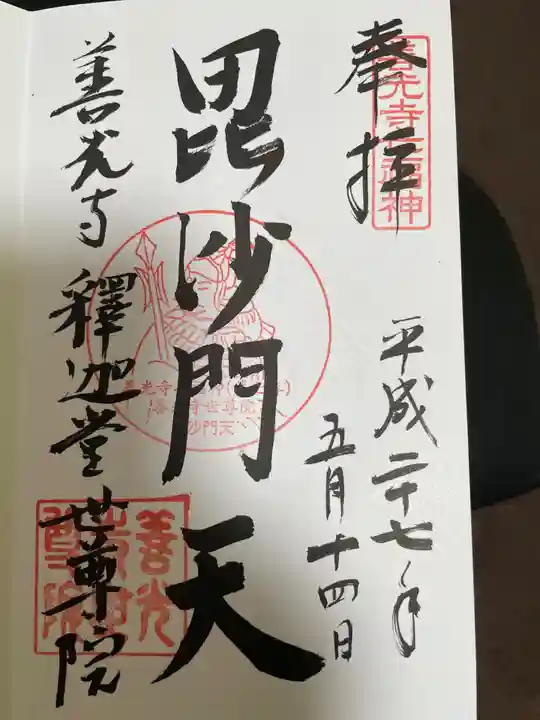 奉拝
善光寺七福神
平成二十七年
五月十四日
毘沙門天
沙門天
善光寺 釋迦堂 世尊院
善光
世尊院